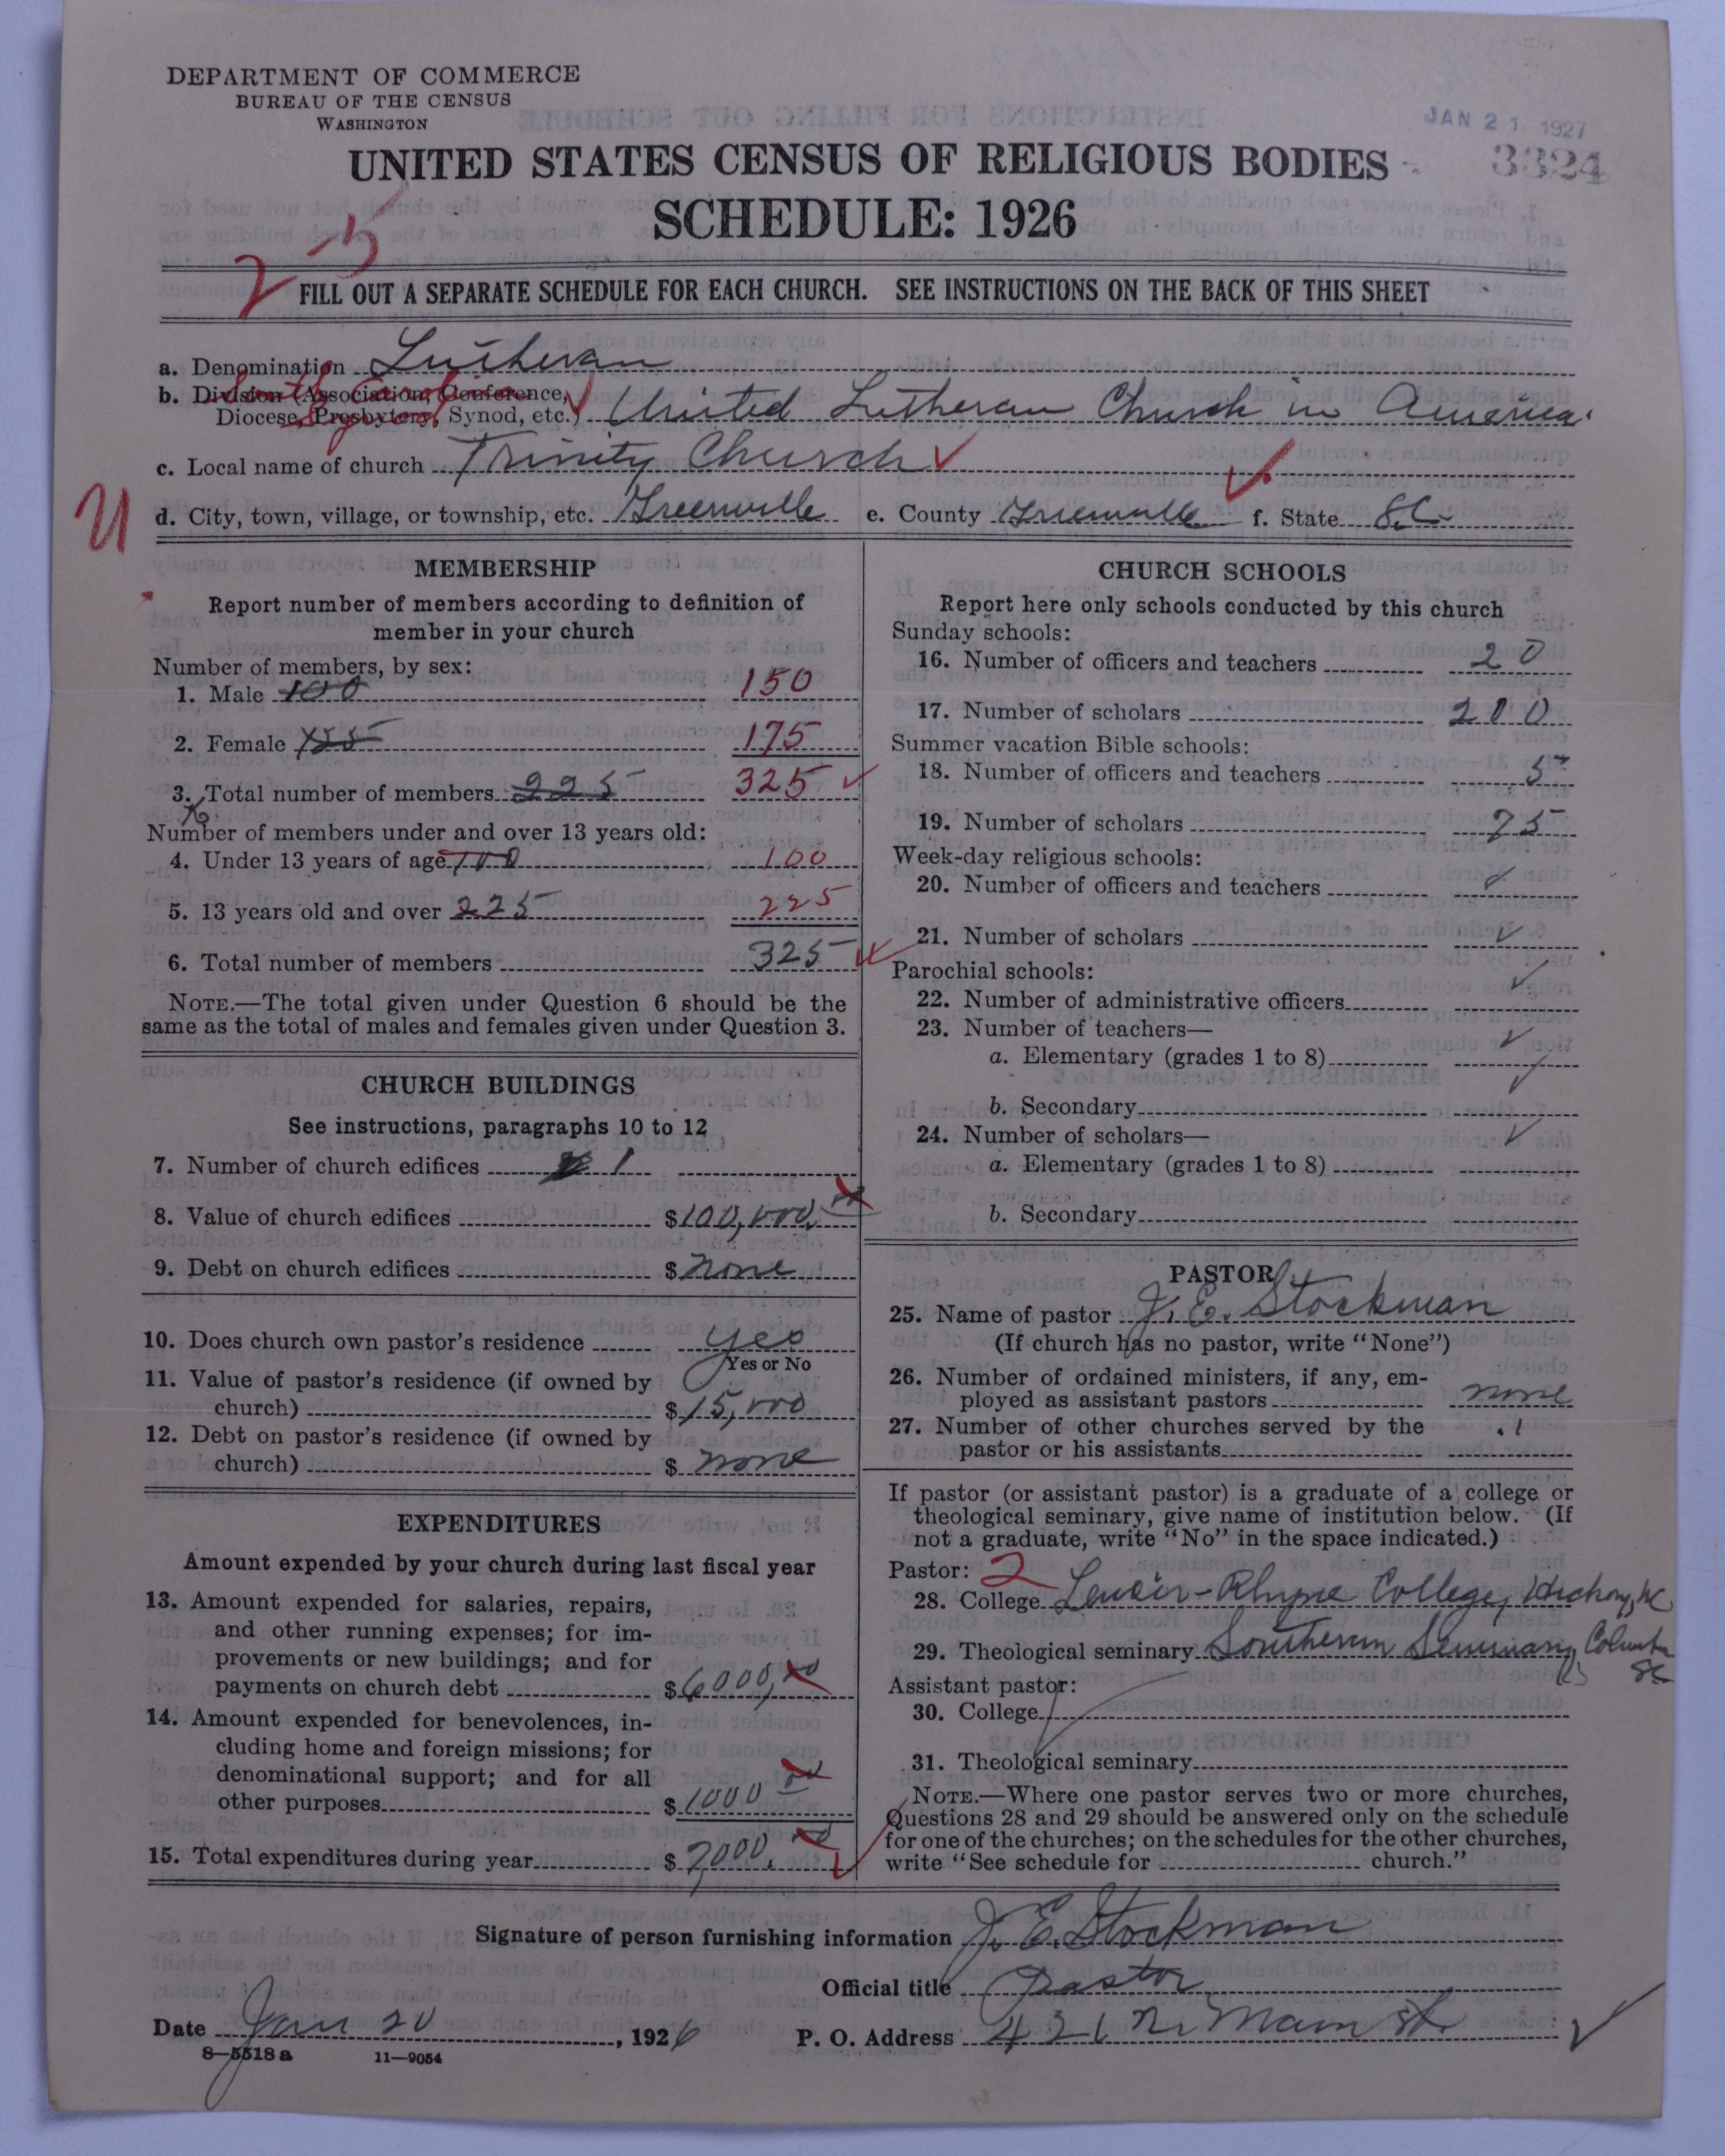 DEPARTMENT OF COMMERCE
BUREAU OF THE CENSUS
WASHINGTON
JAN 21 1927
3324
UNITED STATES CENSUS OF RELIGIOUS BODIES
SCHEDULE: 1926
2-5
FILL OUT A SEPARATE SCHEDULE FOR EACH CHURCH. SEE INSTRUCTIONS ON THE BACK OF THIS SHEET
a. Denomination Lutheran
South Carolina
b. Division (Association, Conference,
Diocese, Presbytery, Synod, etc.) United Lutheran Church in America
Synod
c. Local name of church Trinity Church
U
d. City, town, village, or township, etc. Greenville e. County Greenville f. State S.C.
MEMBERSHIP
Report number of members according to definition of
member in your church
Number of members, by sex:
1. Male 100 150
2. Female 175
3. Total number of members 225 325
Number of members under and over 13 years old:
4. Under 13 years of age 100 100
5. 13 years old and over 225 225
6. Total number of members 325
NOTE.—The total given under Question 6 should be the
same as the total of males and females given under Question 3.
CHURCH BUILDINGS
See instructions, paragraphs 10 to 12
7. Number of church edifices 1
8. Value of church edifices $100,000.00
9. Debt on church edifices $ none
10. Does church own pastor's residence yes
Yes or No
11. Value of pastor's residence (if owned by
church) $15,000
12. Debt on pastor's residence (if owned by
church) $ none
EXPENDITURES
Amount expended by your church during last fiscal year
13. Amount expended for salaries, repairs,
and other running expenses; for im-
provements or new buildings; and for
payments on church debt $6000,00
14. Amount expended for benevolences, in-
cluding home and foreign missions; for
denominational support; and for all
other purposes $1000 00
15. Total expenditures during year $7000.00
CHURCH SCHOOLS
Report here only schools conducted by this church
Sunday schools:
16. Number of officers and teachers 20
17. Number of scholars 200
Summer vacation Bible schools:
18. Number of officers and teachers 5
19. Number of scholars 75
Week-day religious schools:
20. Number of officers and teachers
21. Number of scholars
Parochial schools:
22. Number of administrative officers
23. Number of teachers—
a. Elementary (grades 1 to 8)
b. Secondary
24. Number of scholars—
a. Elementary (grades 1 to 8)
b. Secondary
PASTOR
25. Name of pastor J. E. Stockman
(If church has no pastor, write "None")
26. Number of ordained ministers, if any, em-
ployed as assistant pastors none
27. Number of other churches served by the
pastor or his assistants 1
If pastor (or assistant pastor) is a graduate of a college or
theological seminary, give name of institution below. (If
not a graduate, write "No" in the space indicated.)
Pastor: 2
28. College Lenoir-Rhyne College, Hickory, NC
29. Theological seminary Southern Seminary, Columbia
SC
Assistant pastor:
30. College
31. Theological seminary
NOTE.—Where one pastor serves two or more churches,
Questions 28 and 29 should be answered only on the schedule
for one of the churches; on the schedules for the other churches,
write "See schedule for church."
Signature of person furnishing information J. E. Stockman
Official title Pastor
Date Jan 20, 1926 P. O. Address 421 N. Main St.
8—5518 a 11—9054